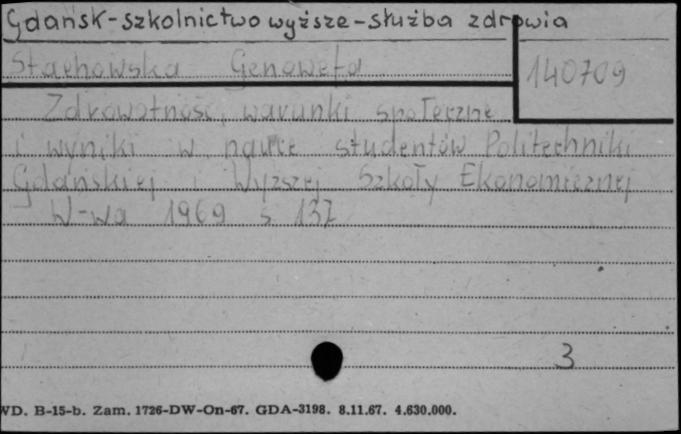 Gdańsk-szkolnictwo wyższe-służba zdrowia
Stachowska Genowefa
140709
Zdrowotność, warunki społeczne
i wyniki w nauce studentów Politechniki
Gdańskiej i Wyższej Szkoły Ekonomicznej
W-wa 1969 s 137
3
WD. B-15-b. Zam. 1726-DW-On-67. GDA-3198. 8.11.67. 4.630.000.